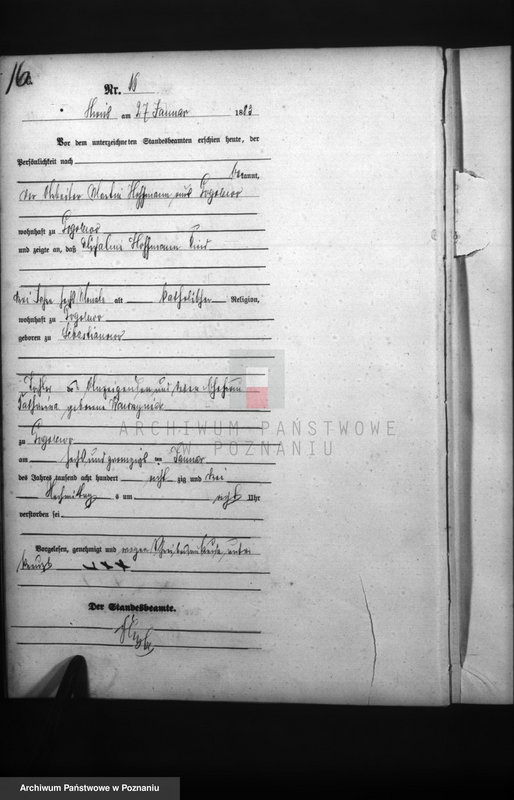 16.
Nr. 16
am 27 Januar 1883
Vor dem unterzeichneten Standesbeamten erschien heute, der
Persönlichkeit nach
kannt,
der Arbeiter Martin Hoffmann aus
wohnhaft zu
und zeigte an, daß Hoffmann Kind
drei Jahr sechs Monate alt katholischer Religion,
wohnhaft zu
geboren zu
Tochter des Anzeigenden und seiner Ehefrau
Katharina geborene
zu
am sechsundzwanzigsten Januar
des Jahres tausend acht hundert achtzig und drei
Nachmittags um acht Uhr
verstorben sei.
Vorgelesen, genehmigt und wegen Schreibensunkunde unter
kreuzt +++
Der Standesbeamte.
ARCHIWUM PAŃSTWOWE
W POZNANIU
Archiwum Państwowe w Poznaniu